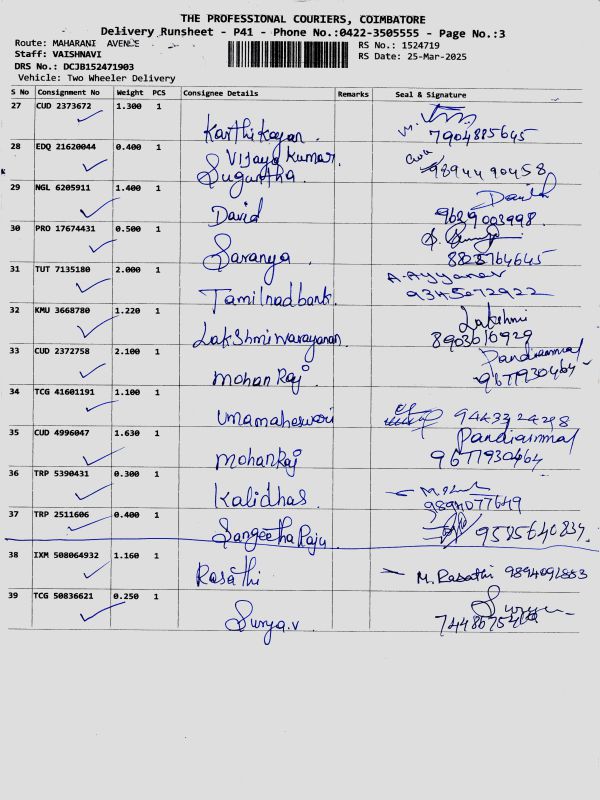 THE PROFESSIONAL COURIERS, COIMBATORE
Delivery Runsheet - P41 - Phone No.:0422-3505555 - Page No.:3
Route: MAHARANI AVENUE RS No.: 1524719
Staff: VAISHNAVI RS Date: 25-Mar-2025
DRS No.: DCJB152471903
Vehicle: Two Wheeler Delivery
S No Consignment No Weight PCS Consignee Details Remarks Seal & Signature
27 CUD 2373672 1.300 1
Karthikayan. 7904885645
28 EDQ 21620044 0.400 1 Vijaya Kumar.
Sugantha. 9894490458
29 NGL 6205911 1.400 1 David
David 9629003998
30 PRO 17674431 0.500 1
Saranya. 8825764645
31 TUT 7135180 2.000 1 A. Ayyanar
Tamilnad bank. 9345072922
32 KMU 3668780 1.220 1 Lakshmi
Lakshmi Narayanan 8903616929
33 CUD 2372758 2.100 1 Pandiammal
Mohan Raj 9677930464
34 TCG 41601191 1.100 1
Umamaheswari 9443324298
35 CUD 4996047 1.630 1 Pandiammal
Mohanraj 9677930464
36 TRP 5390431 0.300 1
Kalidhas. 9894077649
37 TRP 2511606 0.400 1
Sangeetha Raju. 9585640834
38 IXM 508064932 1.160 1
Rasathi M. Rasathi 9894091853
39 TCG 50836621 0.250 1 Surya
Surya.v